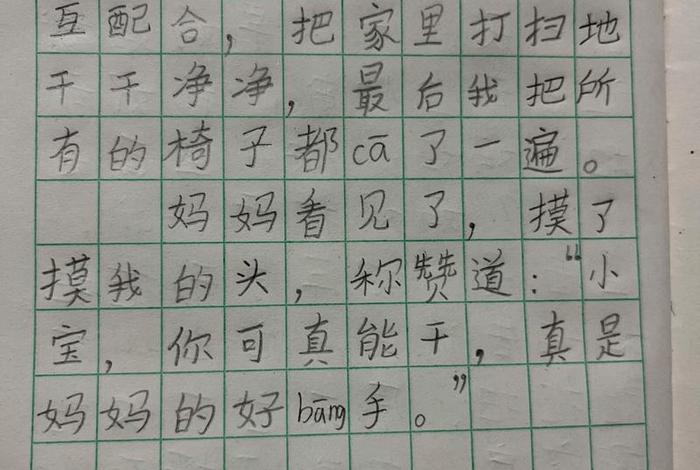 互配合，把家里打扫地
干干净净，最后我把所
有的椅子都cā了一遍。
妈妈看见了，摸了
摸我的头，称赞道：“小
宝，你可真能干，真是
妈妈的好bāng手。”